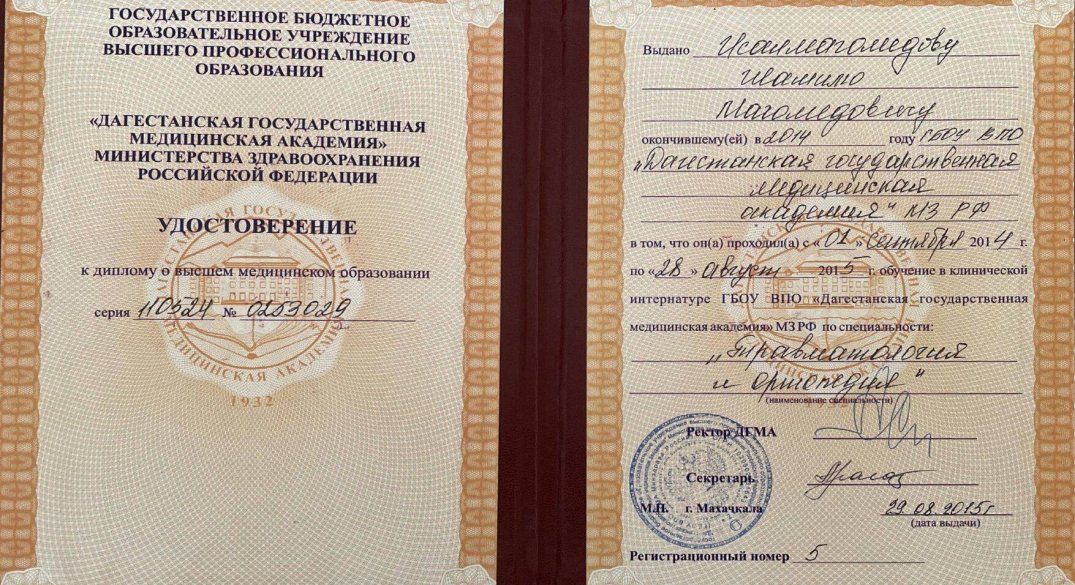 ГОСУДАРСТВЕННОЕ БЮДЖЕТНОЕ
ОБРАЗОВАТЕЛЬНОЕ УЧРЕЖДЕНИЕ
ВЫСШЕГО ПРОФЕССИОНАЛЬНОГО
ОБРАЗОВАНИЯ
«ДАГЕСТАНСКАЯ ГОСУДАРСТВЕННАЯ
МЕДИЦИНСКАЯ АКАДЕМИЯ»
МИНИСТЕРСТВА ЗДРАВООХРАНЕНИЯ
РОССИЙСКОЙ ФЕДЕРАЦИИ
УДОСТОВЕРЕНИЕ
к диплому о высшем медицинском образовании
серия 110524 № 0253029
1932
Выдано Исалмагомедову
Шамилю
Магомедовичу
окончившему(ей) в 2014 году ГБОУ ВПО
„Дагестанская государственная
медицинская
академия" МЗ РФ
в том, что он(а) проходил(а) с «01» сентября 2014 г.
по «28» август 2015 г. обучение в клинической
интернатуре ГБОУ ВПО «Дагестанская государственная
медицинская академия» МЗ РФ по специальности:
„Травматология
и ортопедия"
(наименование специальности)
Ректор ДГМА
Секретарь
М.П. г. Махачкала
29.08.2015г
(дата выдачи)
Регистрационный номер 5